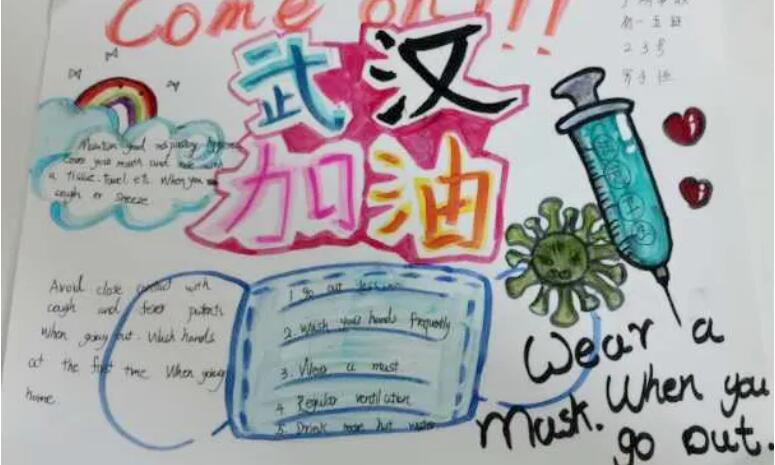 Come on!!!
初一五班
23号
武汉
加油
Maintain good respiratory hygiene
cover your mouth and nose with
a tissue. towel. etc. When you
cough or sneeze.
Avoid close contact with
cough and fever patients
When going out. Wash hands
at the first time When going
home.
1 go out less
2. Wash your hands frequently
3. Wear a mast
4 Regular ventilation
5. Drink more hot water
Wear a
Mask. When you
go out.